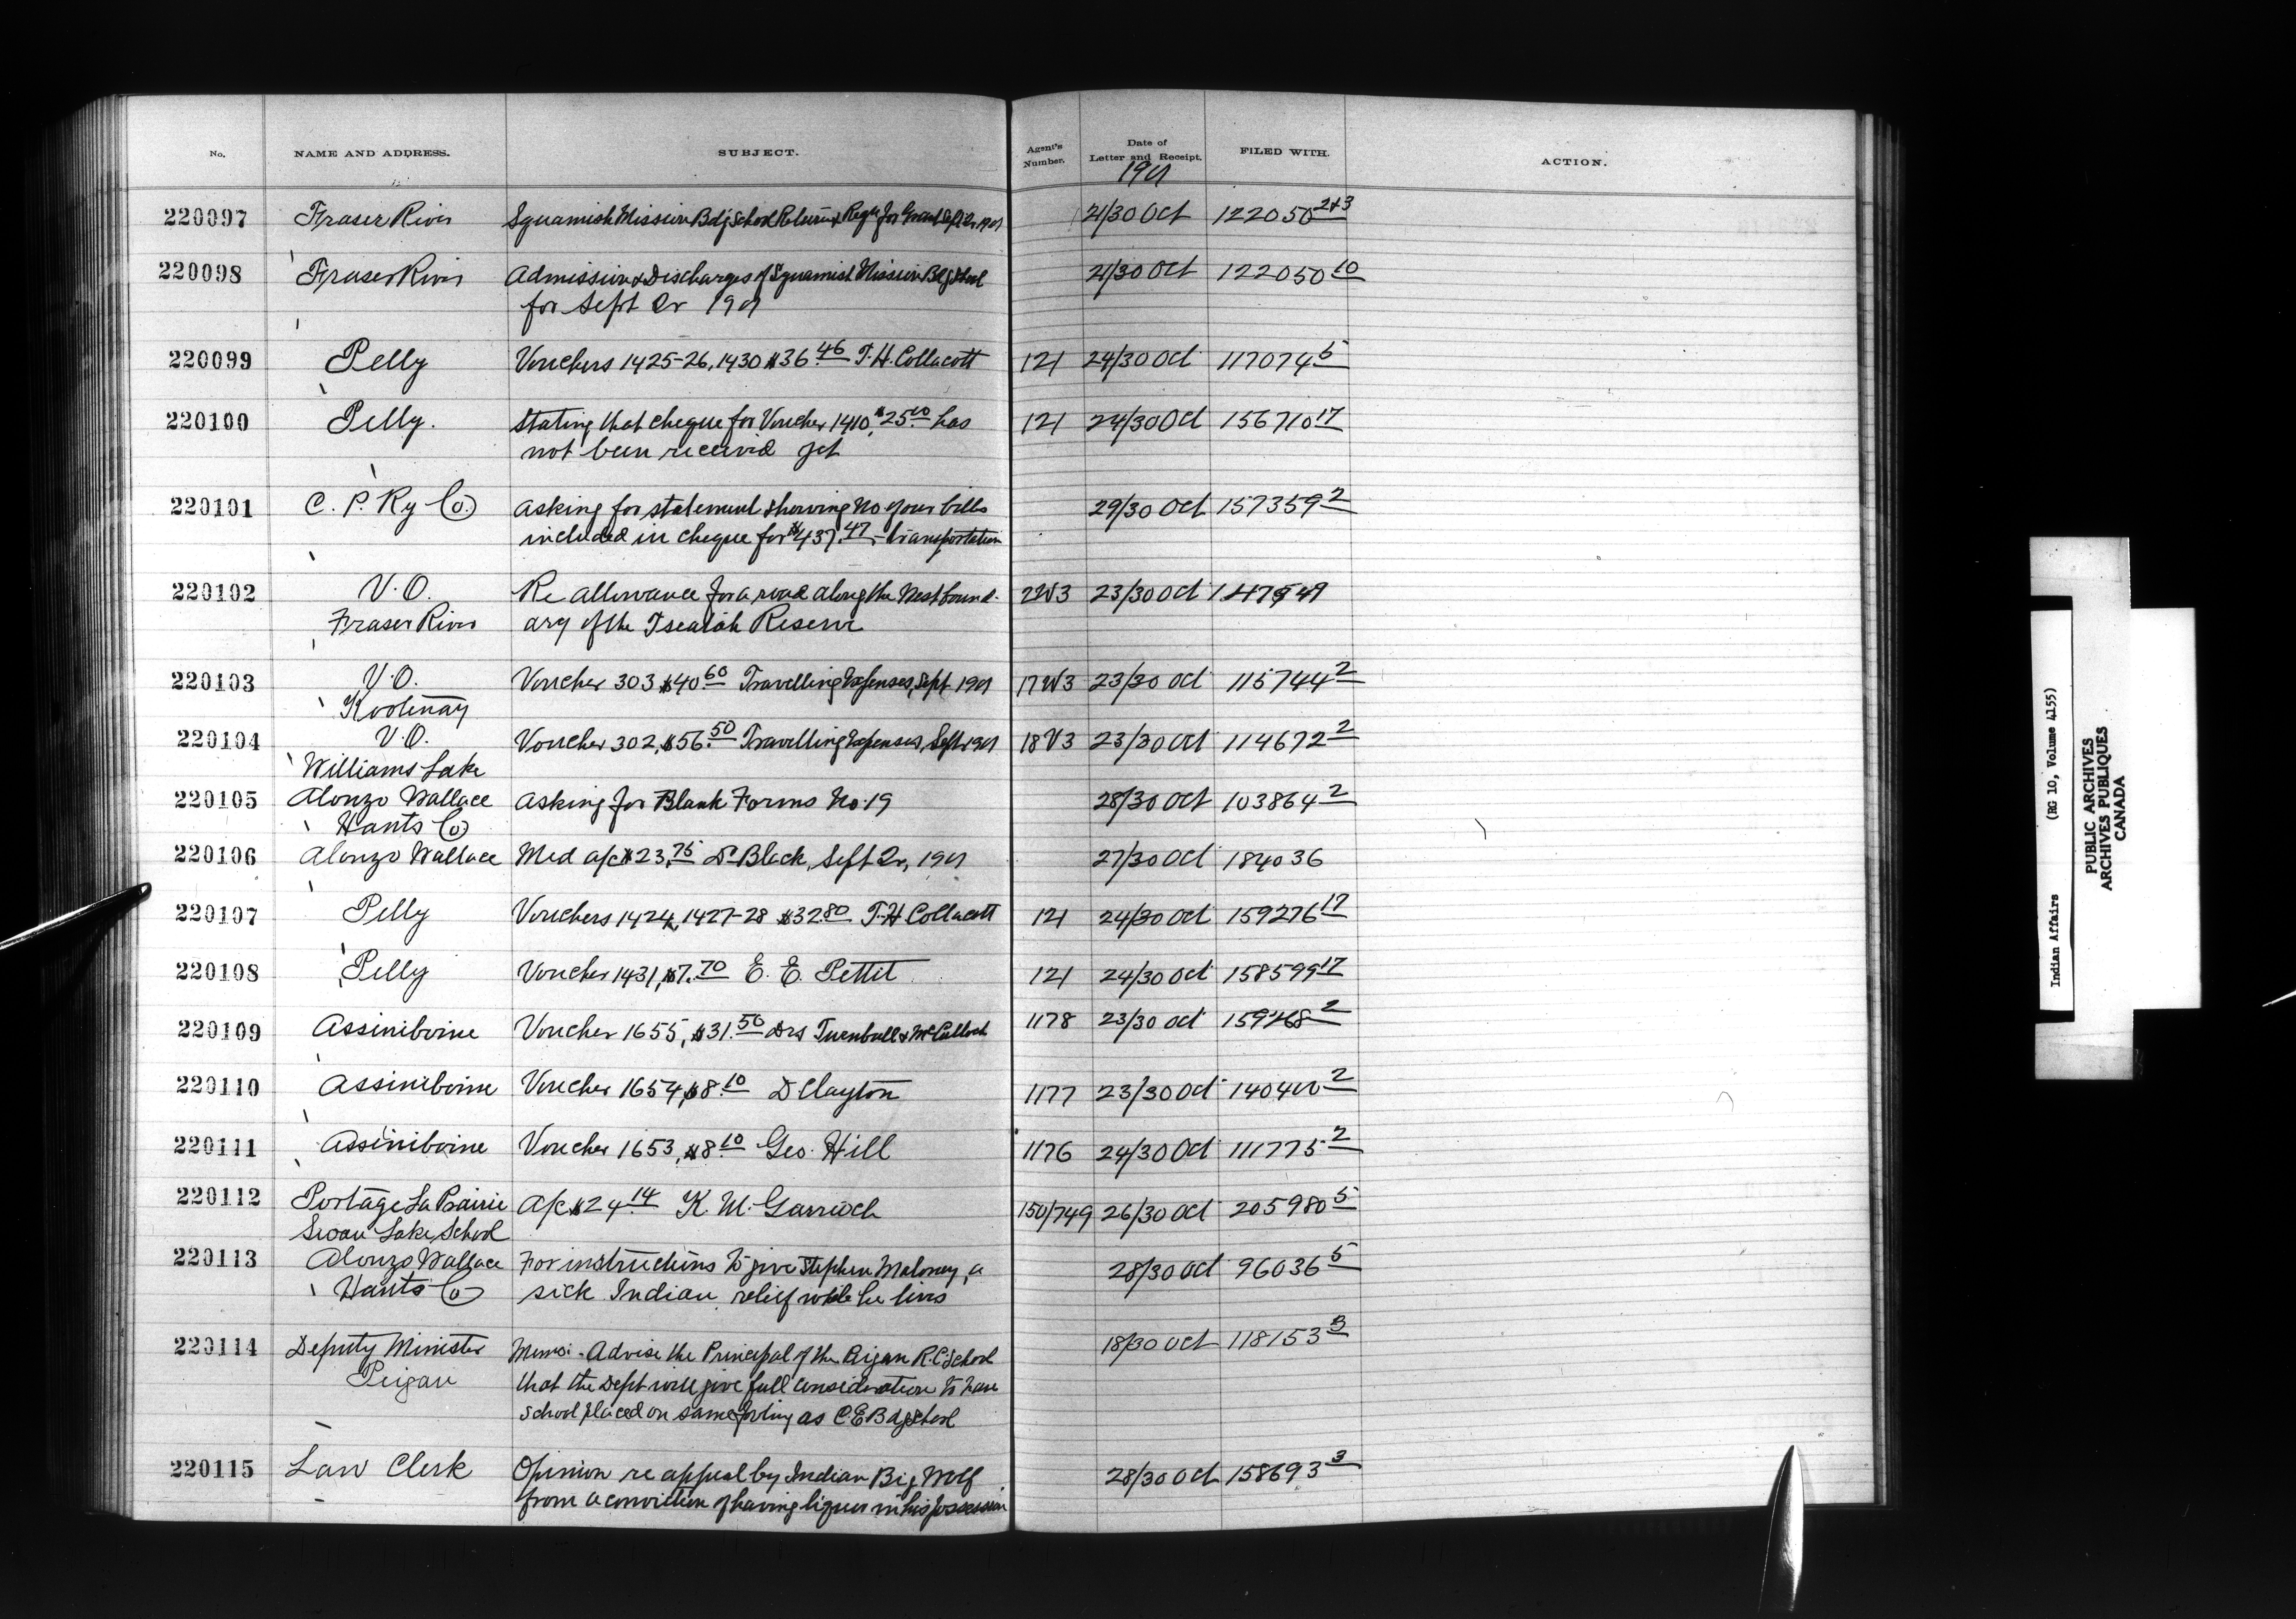 No. NAME AND ADDRESS. SUBJECT. Agent's Number. Date of Letter and Receipt. FILED WITH. ACTION.
1901
220097 Fraser River Squamish Mission Bdg School Returns & Reqn for Grant Sept Qr 1901 21/30 Oct 122050 2+3
220098 Fraser River Admission & Discharges of Squamish Mission Bdg School 21/30 Oct 122050 10
for Sept Qr 1901
220099 Pelly Vouchers 1425-26, 1430 $36.46 T.H. Collacott 121 24/30 Oct 117074 5
220100 Pelly. Stating that cheque for Voucher 1410, $25.00 has 121 24/30 Oct 156710 17
not been received yet
220101 C. P. Ry Co. Asking for statement showing No. of our bills 29/30 Oct 157359 2
included in cheque for $437.47 - transportation
220102 V.O. Re allowance for a road along the West bound- 2W3 23/30 Oct
Fraser River ary of the Reserve
220103 V.O. Voucher 303 $40.60 Travelling Expenses, Sept 1901 17W3 23/30 Oct 115744 2
Kootenay
220104 V.O. Voucher 302, $56.50 Travelling Expenses, Sept 1901 18V3 23/30 Oct 114672 2
Williams Lake
220105 Alonzo Wallace Asking for Blank Forms No. 19 28/30 Oct 103864 2
Hants Co
220106 Alonzo Wallace Med a/c $23.75 Dr Black, Sept Qr, 1901 27/30 Oct 184036
220107 Pelly Vouchers 1424, 1427-28 $32.80 T.H Collacott 121 24/30 Oct 159276 17
220108 Pelly Voucher 1431, $7.70 E. E. Pettit 121 24/30 Oct 158599 17
220109 Assiniboine Voucher 1655, $31.50 Drs Turnbull & McCulloch 1178 23/30 Oct 159268 2
220110 Assiniboine Voucher 1654, $8.10 D Clayton 1177 23/30 Oct 140400 2
220111 Assiniboine Voucher 1653, $8.10 Geo. Hill 1176 24/30 Oct 111775 2
220112 Portage La Prairie A/c $24.14 K. M. Garrioch 150/749 26/30 Oct 205980 5
Swan Lake School
220113 Alonzo Wallace For instructions to give Stephen Maloney, a 28/30 Oct 96036 5
Hants Co sick Indian, relief while he lives
220114 Deputy Minister Memo - Advise the Principal of the Peigan R.C. School 18/30 Oct 118153 3
Peigan that the Dept will give full consideration to have
school placed on same footing as C.E Bdg School
220115 Law Clerk Opinion re appeal by Indian Big Wolf 28/30 Oct 158693 3
from a conviction of having liquor in his possession
Indian Affairs (RG 10, Volume 4155)
PUBLIC ARCHIVES
ARCHIVES PUBLIQUES
CANADA